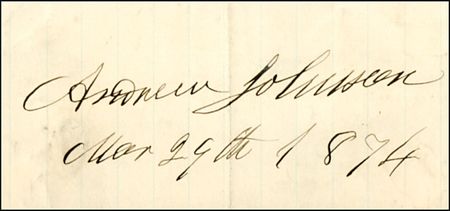 Andrew Johnson
Mar 29th 1874